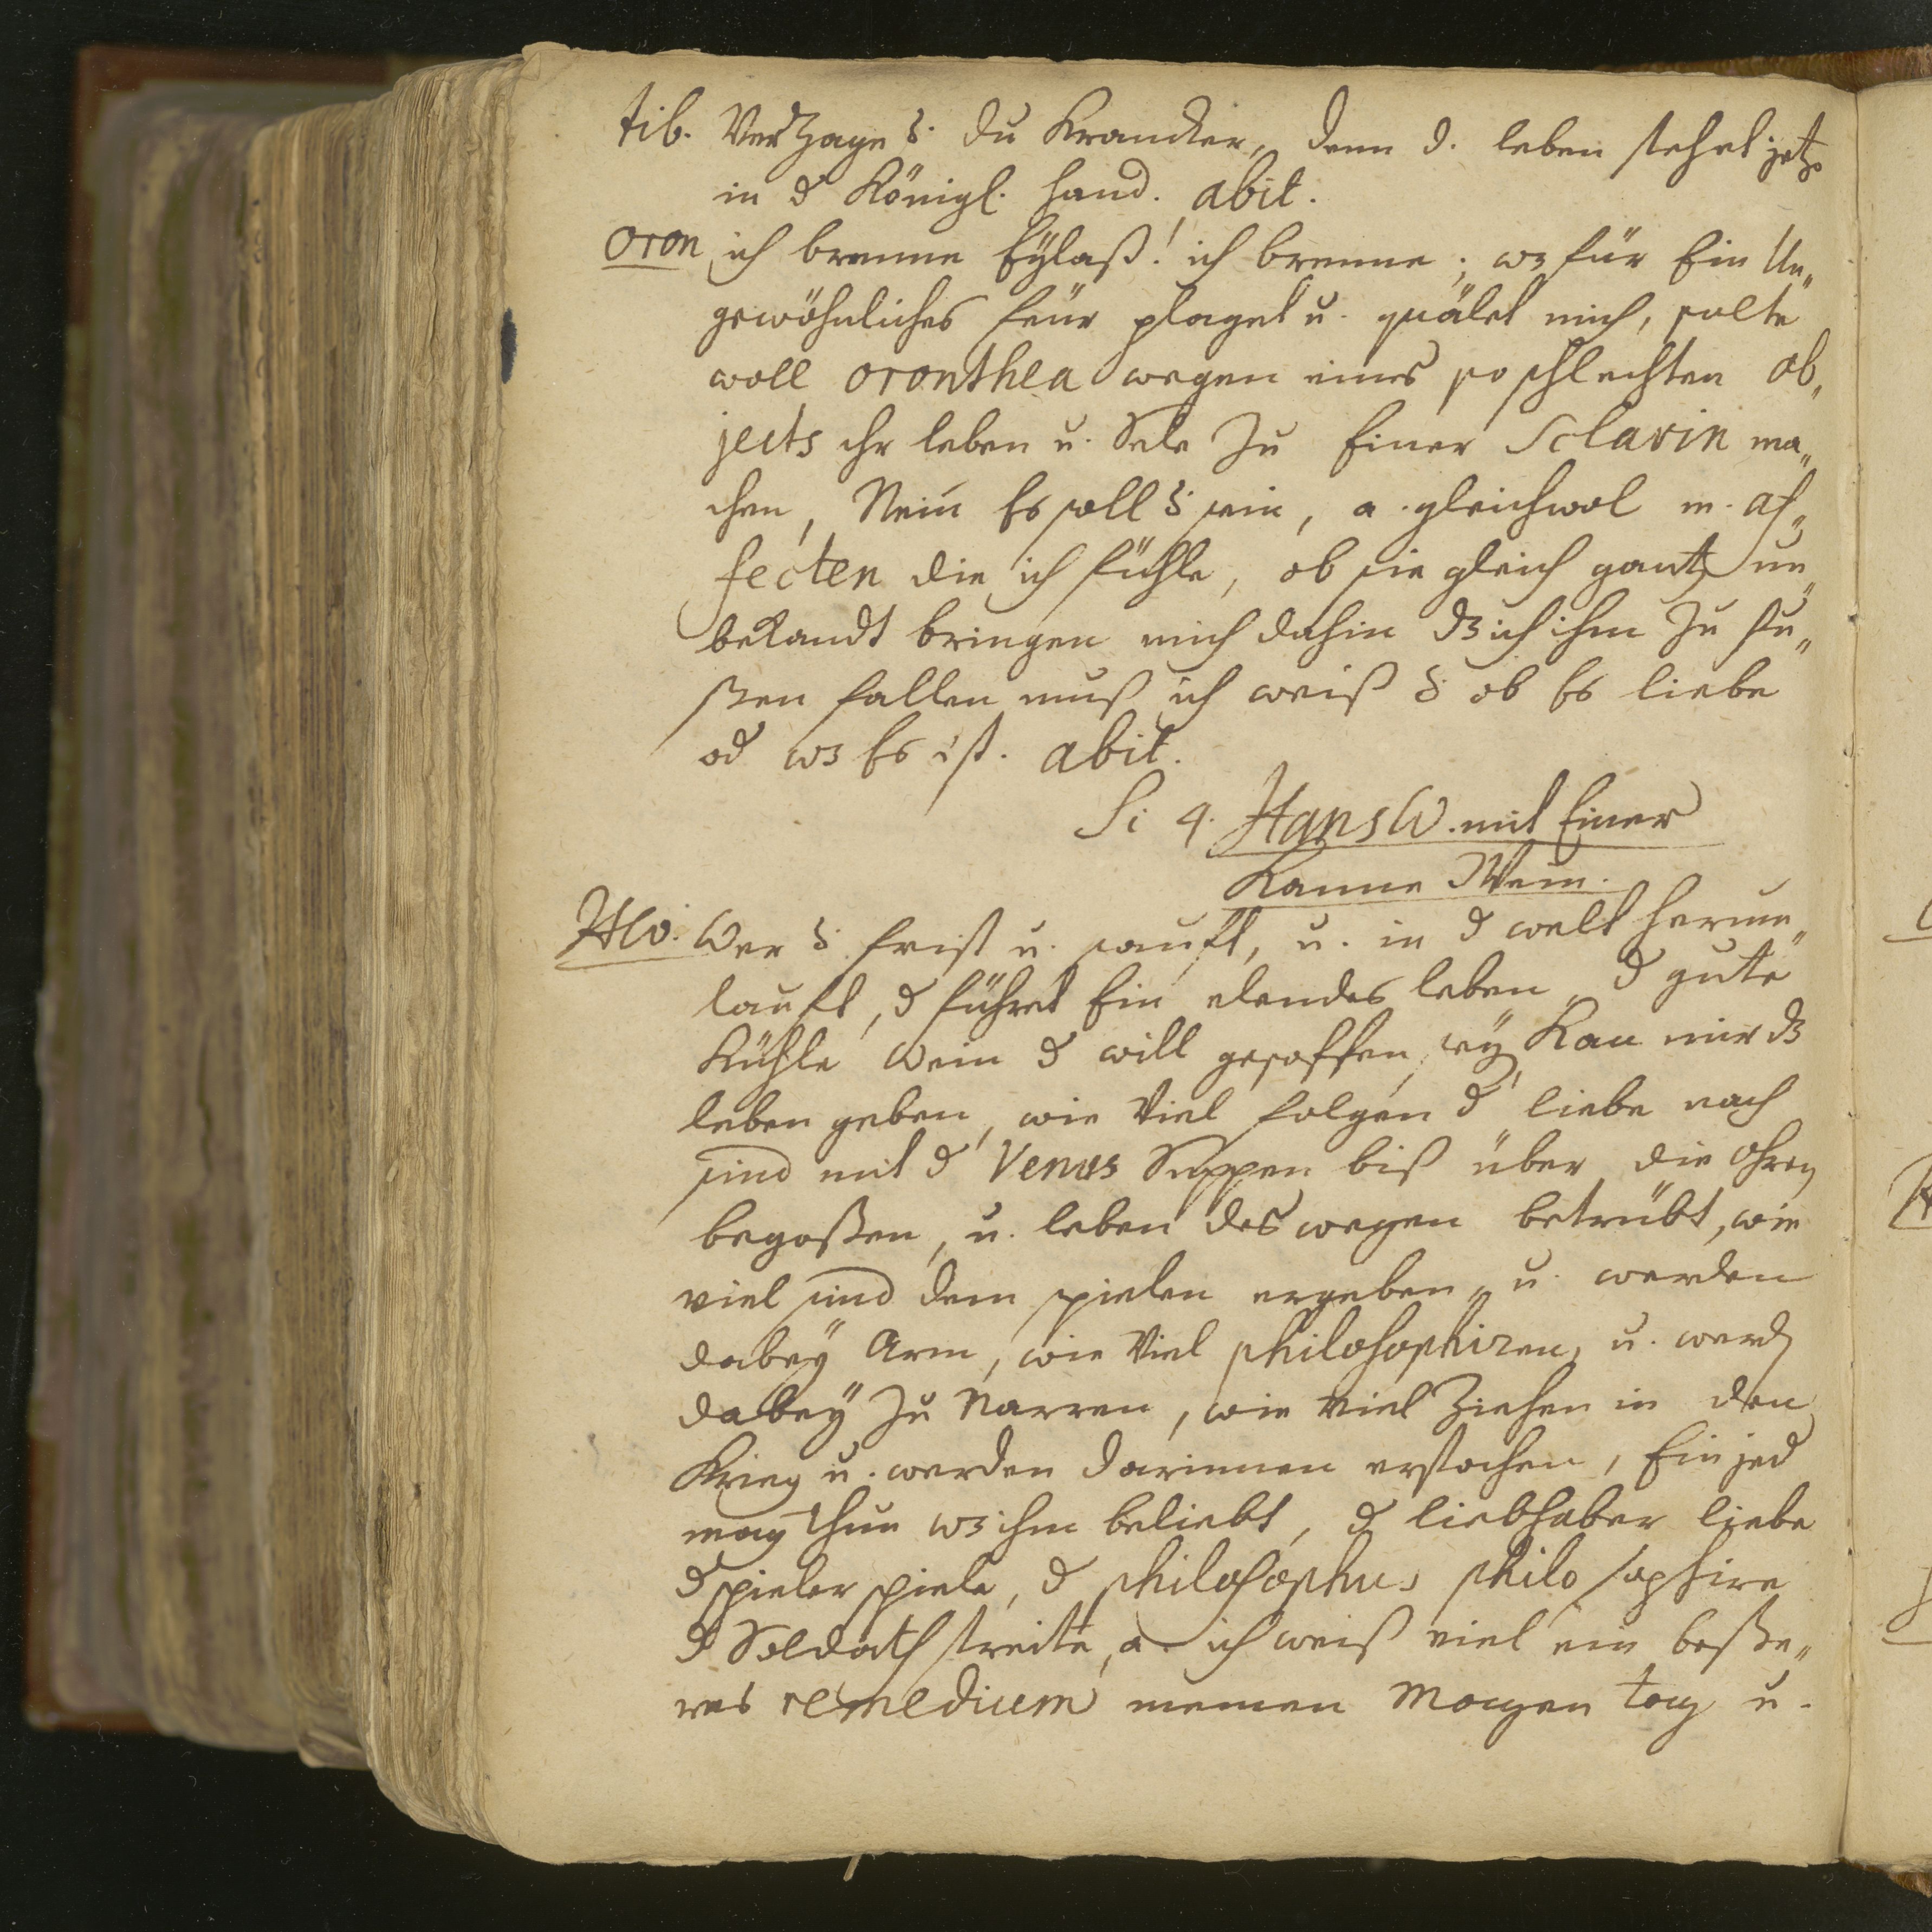 tib. Verzage δ. du Krancker, denn d. leben stehet jetzo
in d Königl. Hand. abit.
oron ich brenne Eylaß! ich brenne; wz für Ein Un„
gewöhnliches feür plaget u. quälet mich, solte
woll oronthea wegen eines so schlechten ob„
jects ihr leben u. Sele zu Einer Sclavin ma„
chen, Nein Es soll δ. sein, a. gleichwol m. af„
fecten die ich fühle, ob sie gleich gantz un„
bekandt bringen mich dahin dz ich ihm zu fu„
ßen fallen muß ich weiß δ. ob Es liebe
od wz Es ist. abit.
Sc 4. Hans W. mit Einer
Kanne Wein.
HW. Wer δ. frist u. sauft, u. in d welt herum„
lauft, d führet Ein elendes leben, d gute
Kühle Wein d will gesoffen sey, Kan mir dz
leben geben, wie Viel folgen d liebe nach
sind mit d Venus Suppen biß über die ohren
begoßen, u. leben deswegen betrübt, wie
viel sind dem spielen ergeben, u. werden
dabey Arm, wie Viel philosophiren, u. werd
dabey zu Narren, wie Viel Ziehen in den
Krieg u. werden darinnen erstochen, Ein jed
mag thun wz ihm beliebt, d liebhaber liebe
d spieler spiele, d philosophus philosophire
d Soldath streite, a. ich weiß viel ein beße„
res remedium meinen Magen tag u.